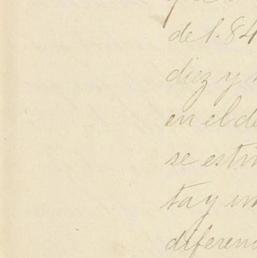 de 1.84
diez y
en el de
se estim
ta y un
diferen